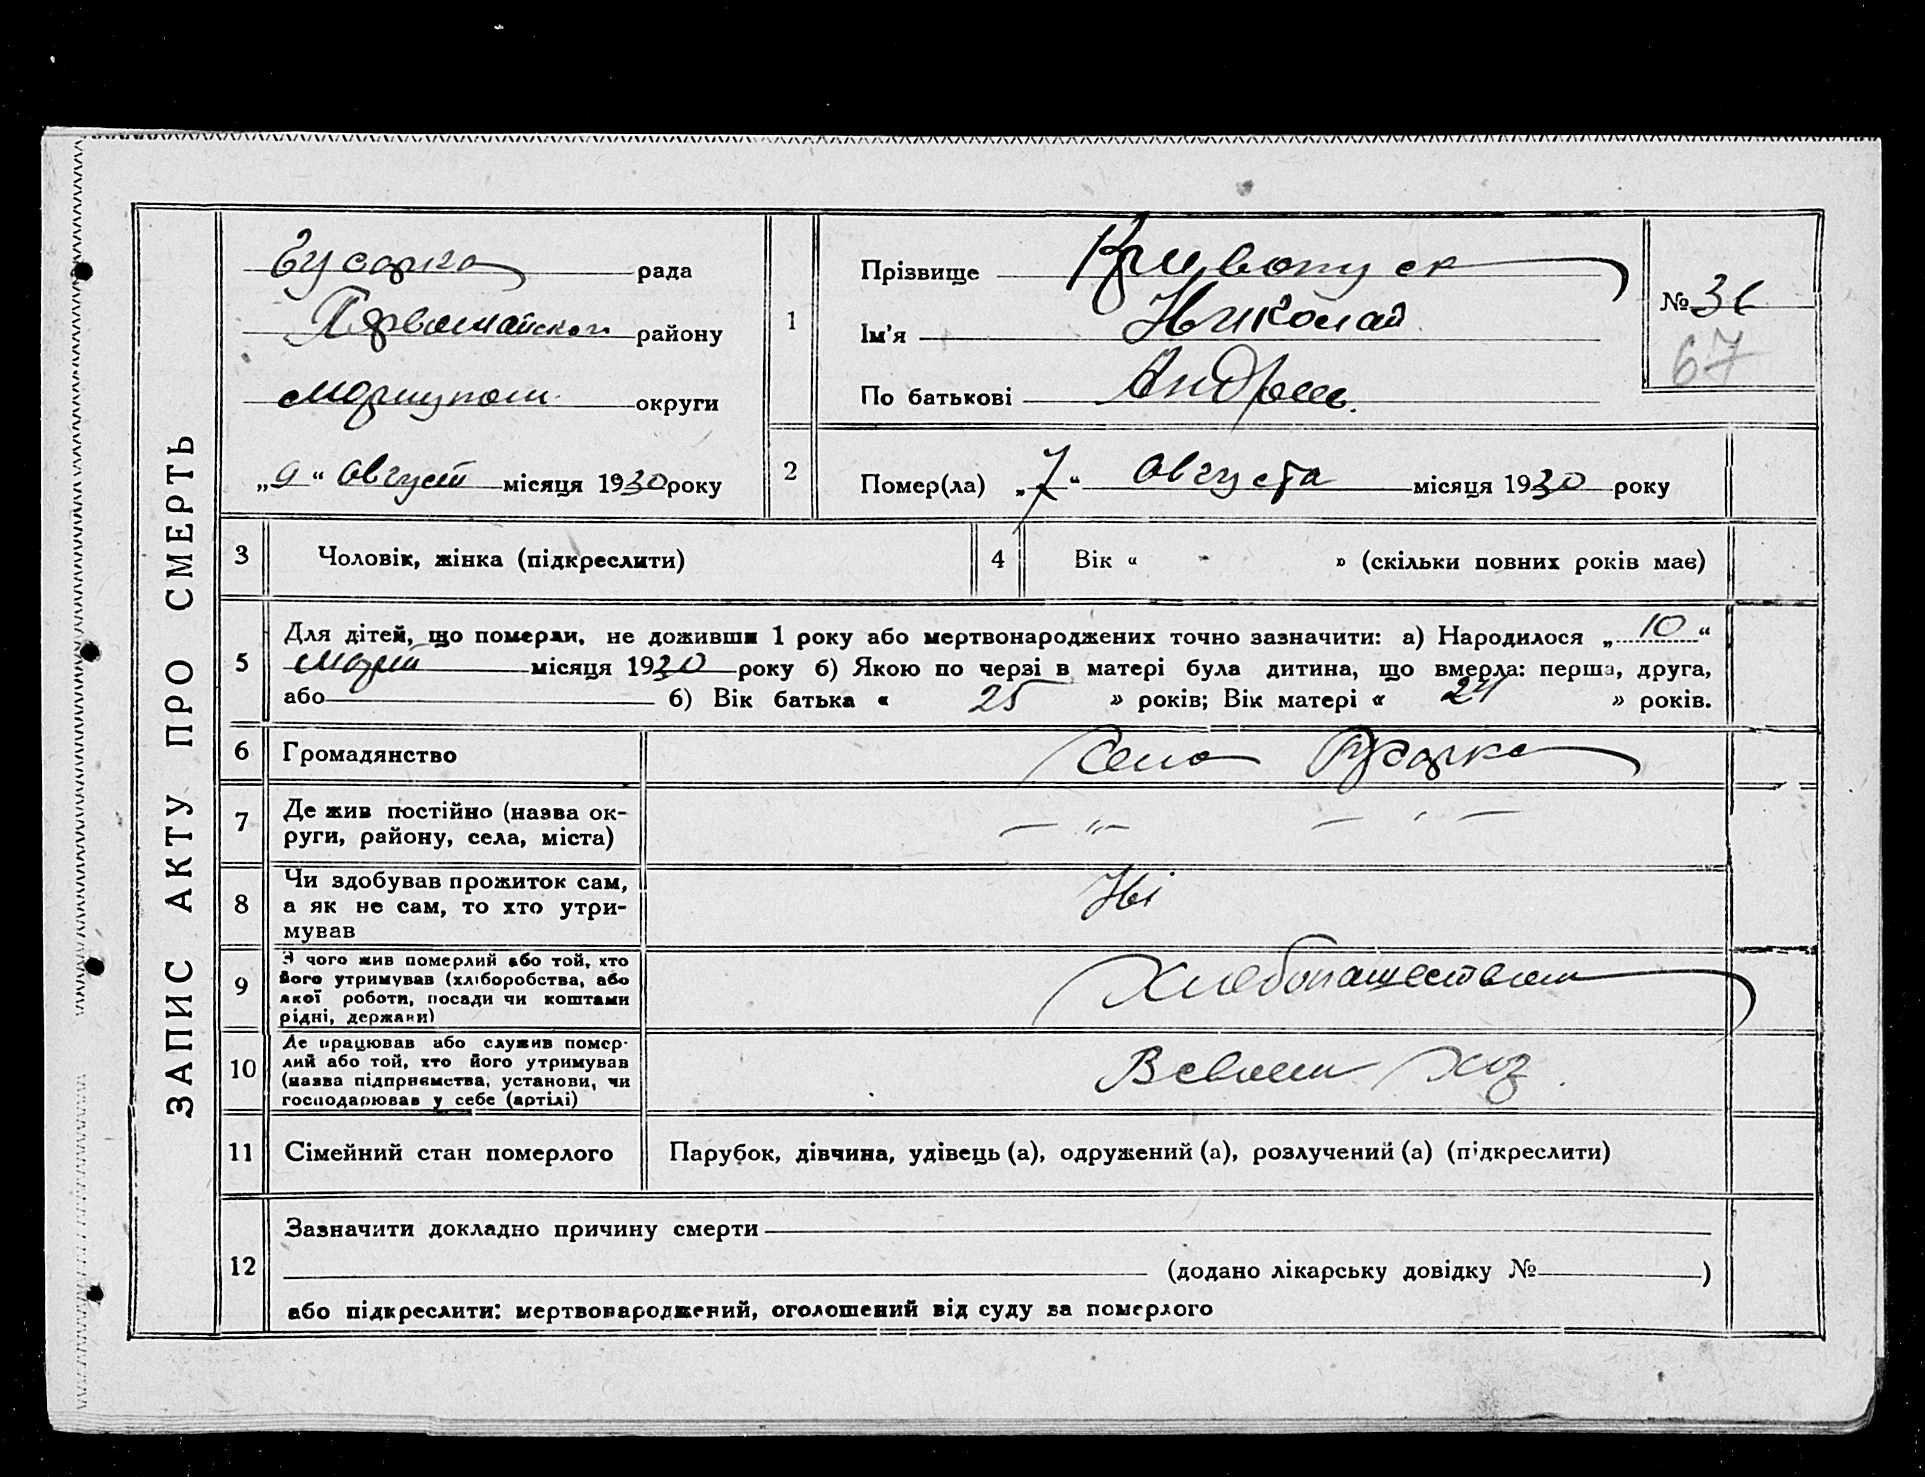 ЗАПИС АКТУ ПРО СМЕРТЬ
Гусарка рада
Первомайского району
Мариупол. округи
„9“ август місяця 1930 року
1
Прізвище Кривопуск
Ім'я Николай
По батькові Андреев.
№ 36
67
2
Помер(ла) „7“ августа місяця 1930 року
3 Чоловік, жінка (підкреслити)
4 Вік « - » (скільки повних років має)
5 Для дітей, що померли, не доживши 1 року або мертвонароджених точно зазначити: а) Народилося „10“
місяця 1930 року б) Якою по черзі в матері була дитина, що вмерла: перша, друга,
або б) Вік батька « 25 » років; Вік матері « 24 » років.
6 Громадянство Село Гусарка
7 Де жив постійно (назва ок-
руги, району, села, міста) — „ — — ' —
8 Чи здобував прожиток сам,
а як не сам, то хто утри-
мував Ні
9 З чого жив померлий або той, хто
його утримував (хліборобства, або
якої роботи, посади чи коштами
рідні, держави) Хлебопашеством
10 Де працював або служив помер-
лий або той, хто його утримував
(назва підприємства, установи, чи
господарював у себе (артілі) В своем хоз.
11 Сімейний стан померлого Парубок, дівчина, удівець (а), одружений (а), розлучений (а) (підкреслити)
12 Зазначити докладно причину смерти
(додано лікарську довідку № )
або підкреслити: мертвонароджений, оголошений від суду за померлого